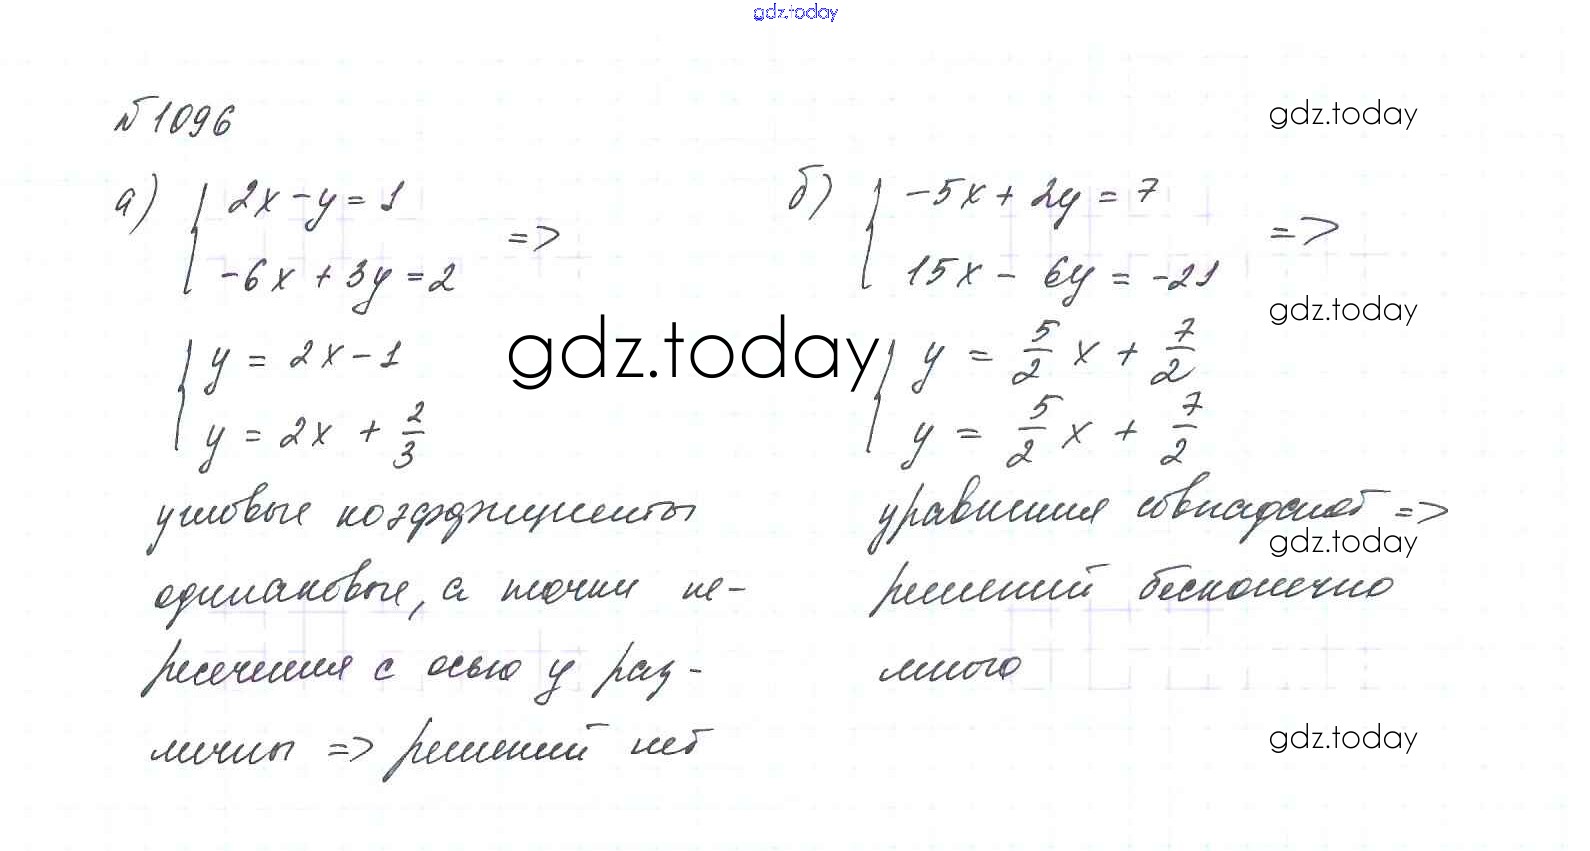 gdz.today
№1096
gdz.today
а) { 2x - y = 1
-6x + 3y = 2 =>
б) { -5x + 2y = 7
15x - 6y = -21 =>
gdz.today
{ y = 2x - 1
y = 2x + 2/3
gdz.today
{ y = 5/2 x + 7/2
y = 5/2 x + 7/2
угловые коэффициенты
одинаковые, а точки пе-
ресечения с осью y раз-
личны => решений нет
уравнения совпадают =>
gdz.today
решений бесконечно
много
gdz.today